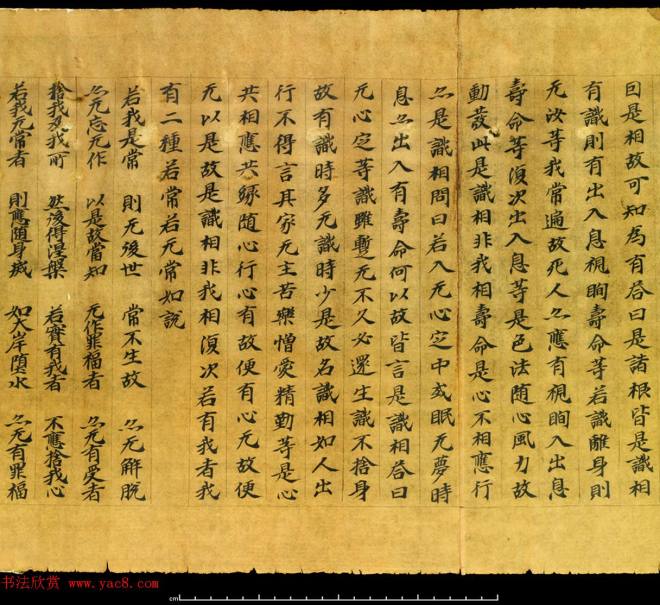 曰是相故可知為有答曰是諸根皆是識相
有識則有出入息視眴壽命等若識離身則
无汝等我常遍故死人亦應有視眴入出息
壽命等復次出入息等是色法随心風力故
動發此是識相非我相壽命是心不相應行
亦是識相問曰若入无心定中或眠无夢時
息亦出入有壽命何以故皆言是識相答曰
无心定等識雖暫无不久必還生識不捨身
故有識時多无識時少是故名識相如人出
行不得言其家无主苦樂憎愛精勤等是心
共相應共緣随心行心有故便有心无故便
无以是故是識相非我相復次若有我者我
有二種若常若无常如說
若我是常 則无後世 常不生故 亦无解脱
亦无忘无作 以是故當知 无作罪福者 亦无有受者
捨我及我所 然後得涅槃 若實有我者 不應捨我心
若我无常者 則應随身滅 如大岸墮水 亦无有罪福
书法欣赏 www.yac8.com
cm